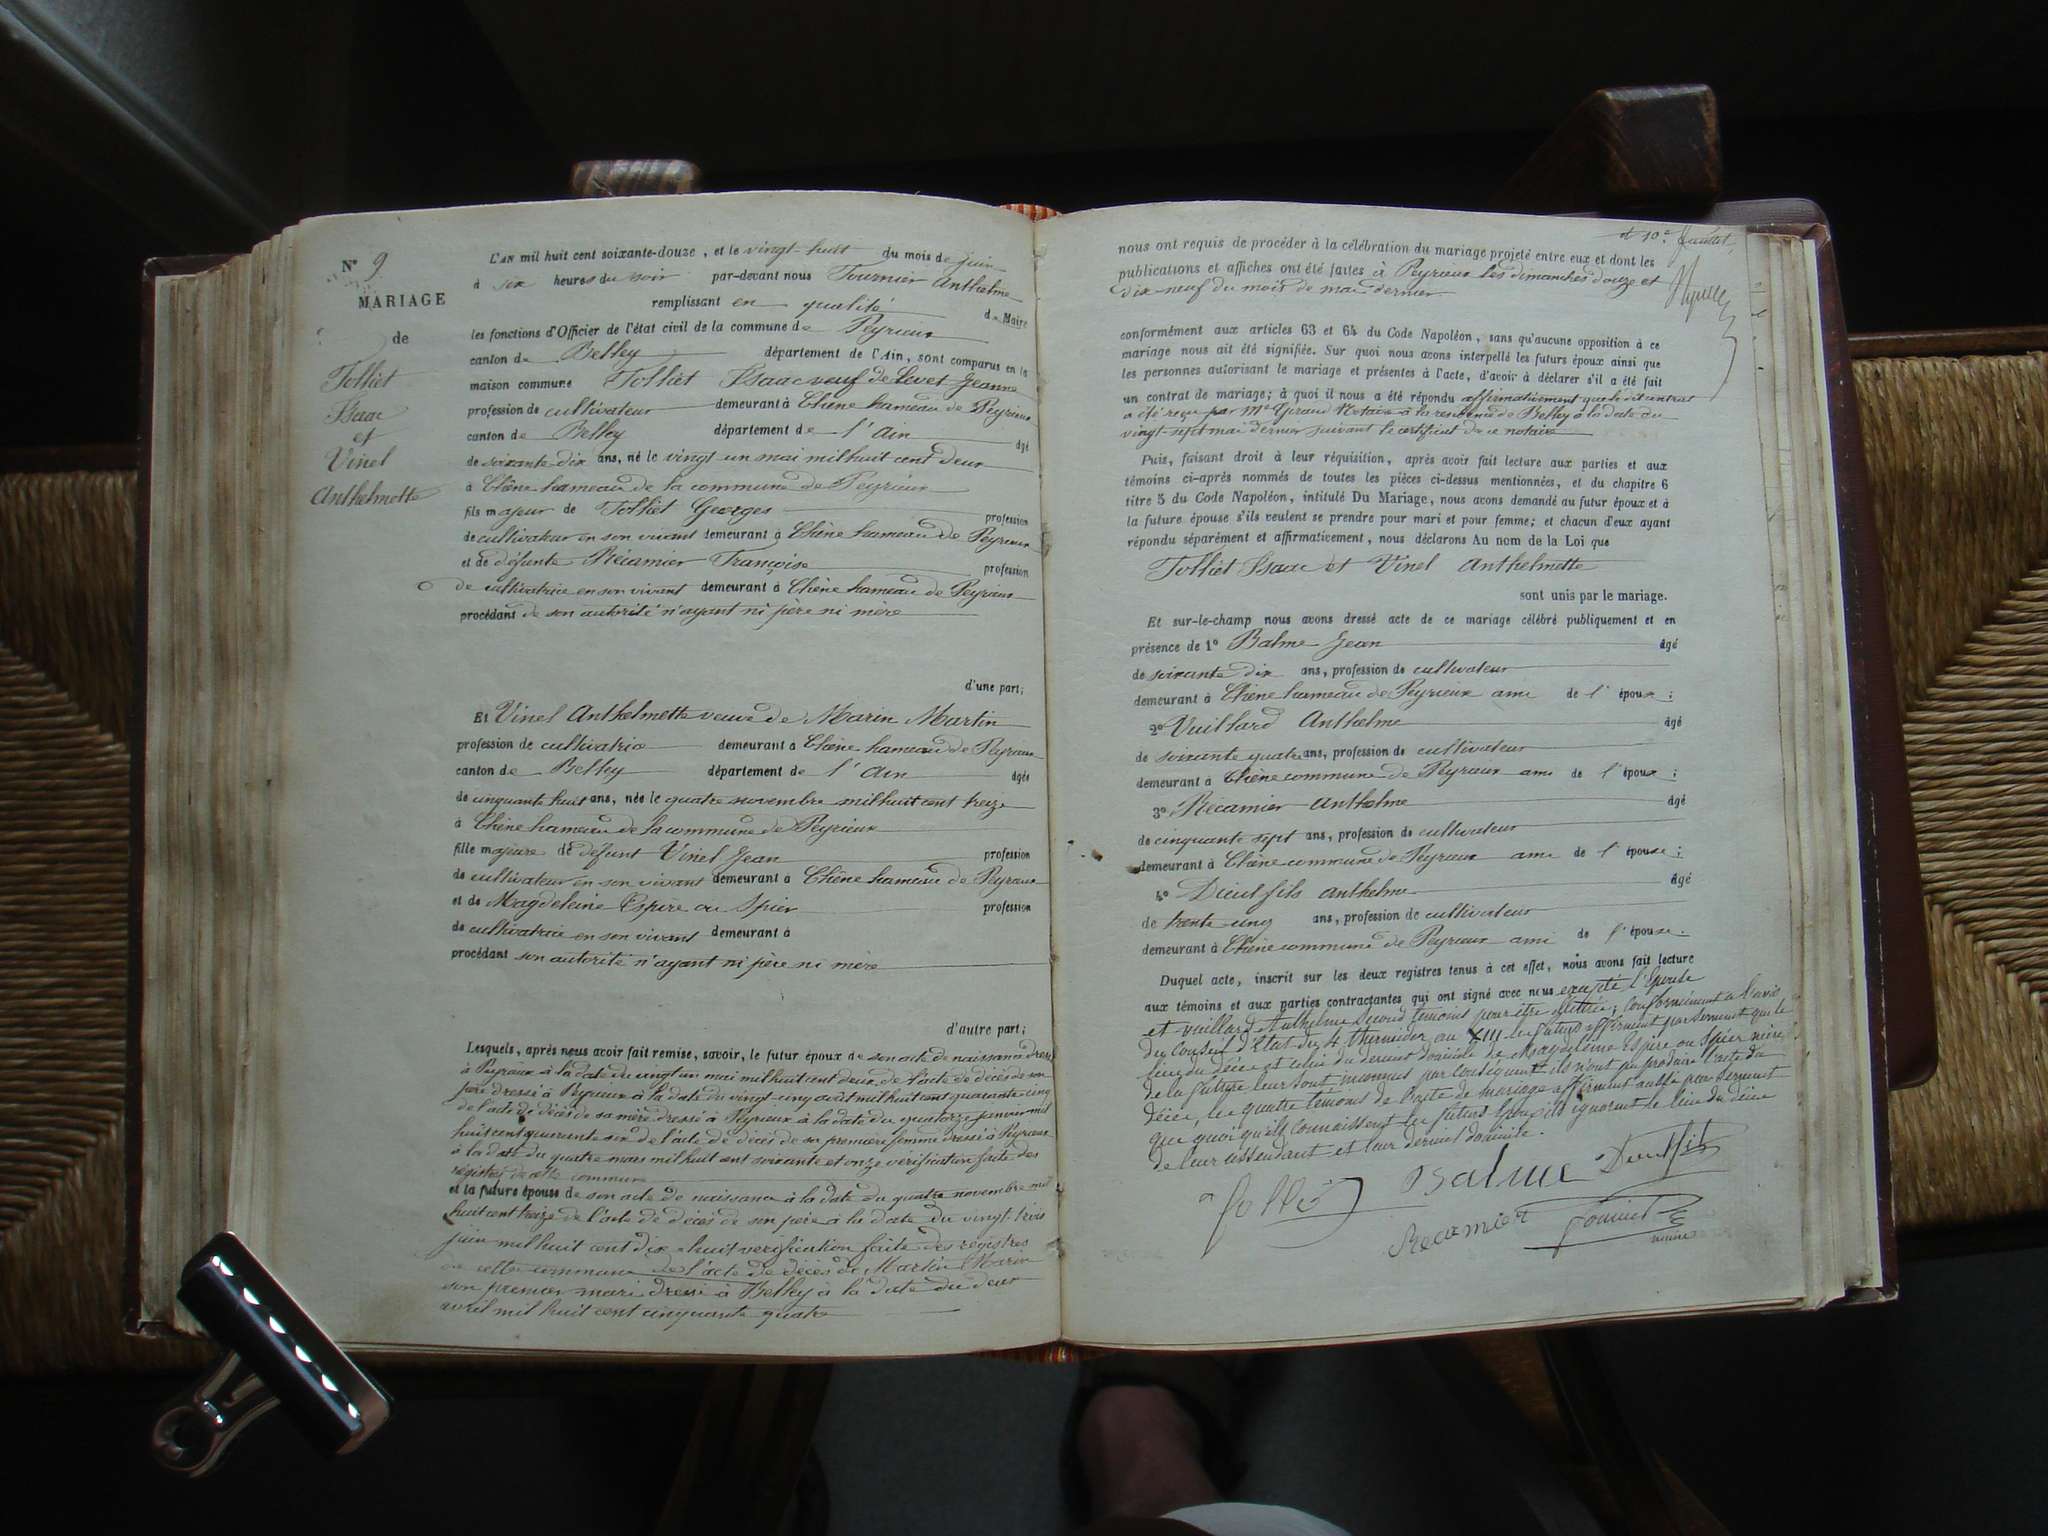 N° 9
MARIAGE
de
Tolliet
Isaac
et
Vinel
Anthelmette
L'AN mil huit cent soixante-douze, et le vingt-huit du mois de juin
à six heures du soir par-devant nous Tournier Anthelme
remplissant en qualité de Maire
les fonctions d'Officier de l'état civil de la commune de Peyrieux
canton de Belley département de l'Ain, sont comparus en la
maison commune Tolliet Isaac veuf de Levet Jeanne
profession de cultivateur demeurant à Chêne hameau de Peyrieux
canton de Belley département de l'Ain âgé
de soixante dix ans, né le vingt un mai mil huit cent deux
à Chêne hameau de la commune de Peyrieux
fils majeur de Tolliet Georges profession
de cultivateur en son vivant demeurant à Chêne hameau de Peyrieux
et de défunte Récamier Françoise profession
de cultivatrice en son vivant demeurant à Chêne hameau de Peyrieux
procédant de son autorité n'ayant ni père ni mère
d'une part;
Et Vinel Anthelmette veuve de Marin Martin
profession de cultivatrice demeurant à Chêne hameau de Peyrieux
canton de Belley département de l'Ain âgée
de cinquante huit ans, née le quatre novembre mil huit cent treize
à Chêne hameau de la commune de Peyrieux
fille majeure de défunt Vinel Jean profession
de cultivateur en son vivant demeurant à Chêne hameau de Peyrieux
et de Magdeleine Espire ou Spier profession
de cultivatrice en son vivant demeurant à
procédant son autorité n'ayant ni père ni mère
d'autre part;
Lesquels, après nous avoir fait remise, savoir, le futur époux de son acte de naissance dressé
à Peyrieux à la date du vingt un mai mil huit cent deux de l'acte de décès de son
père dressé à Peyrieux à la date du vingt cinq août mil huit cent quarante cinq
de l'acte de décès de sa mère dressé à Peyrieux à la date du quatorze janvier mil
huit cent quarante six de l'acte de décès de sa première femme dressé à Peyrieux
à la date du quatre mars mil huit cent soixante et onze vérification faite des
registres de cette commune
et la future épouse de son acte de naissance à la date du quatre novembre mil
huit cent treize de l'acte de décès de son père à la date du vingt trois
juin mil huit cent dix-huit vérification faite des registres
de cette commune de l'acte de décès de Martin Marin
son premier mari dressé à Belley à la date du deux
avril mil huit cent cinquante quatre
et 10e Feuillet,
nous ont requis de procéder à la célébration du mariage projeté entre eux et dont les
publications et affiches ont été faites à Peyrieux les dimanches douze et
dix-neuf du mois de mai dernier
conformément aux articles 63 et 64 du Code Napoléon, sans qu'aucune opposition à ce
mariage nous ait été signifiée. Sur quoi nous avons interpellé les futurs époux ainsi que
les personnes autorisant le mariage et présentes à l'acte, d'avoir à déclarer s'il a été fait
un contrat de mariage; à quoi il nous a été répondu affirmativement que ledit contrat
a été reçu par Me Giraud Notaire à la résidence de Belley à la date du
vingt-sept mai dernier suivant le certificat de ce notaire
Puis, faisant droit à leur réquisition, après avoir fait lecture aux parties et aux
témoins ci-après nommés de toutes les pièces ci-dessus mentionnées, et du chapitre 6
titre 5 du Code Napoléon, intitulé Du Mariage, nous avons demandé au futur époux et à
la future épouse s'ils veulent se prendre pour mari et pour femme; et chacun d'eux ayant
répondu séparément et affirmativement, nous déclarons Au nom de la Loi que
Tolliet Isaac et Vinel Anthelmette
sont unis par le mariage.
Et sur-le-champ nous avons dressé acte de ce mariage célébré publiquement et en
présence de 1° Balme Jean âgé
de soixante dix ans, profession de cultivateur
demeurant à Chêne hameau de Peyrieux ami de l'époux;
2° Vuillard Anthelme âgé
de soixante quatre ans, profession de cultivateur
demeurant à Chêne commune de Peyrieux ami de l'époux;
3° Récamier Anthelme âgé
de cinquante sept ans, profession de cultivateur
demeurant à Chêne commune de Peyrieux ami de l'épouse;
4° Dieufils Anthelme âgé
de trente cinq ans, profession de cultivateur
demeurant à Chêne commune de Peyrieux ami de l'épouse.
Duquel acte, inscrit sur les deux registres tenus à cet effet, nous avons fait lecture
aux témoins et aux parties contractantes qui ont signé avec nous excepté l'Epouse
et vuillard Anthelme second témoins pour être illétrés; conformément à l'avis
du Conseil d'Etat du 4 thermidor an XIII les futurs affirment par serment que le
lieu du décès et celui du dernier domicile de Magdeleine Espire ou Spier mère
de la future leur sont inconnus par conséquent ils n'ont pu produire l'acte du
décès, les quatre témoins de l'acte de mariage affirment aussi par serment
que quoi qu'ils connaissent les futurs époux ils ignorent le lieu du décès
de leur ascendant et leur dernier domicile.
Tollié
Balme
Dieufils
Recamier
Tournier
maire